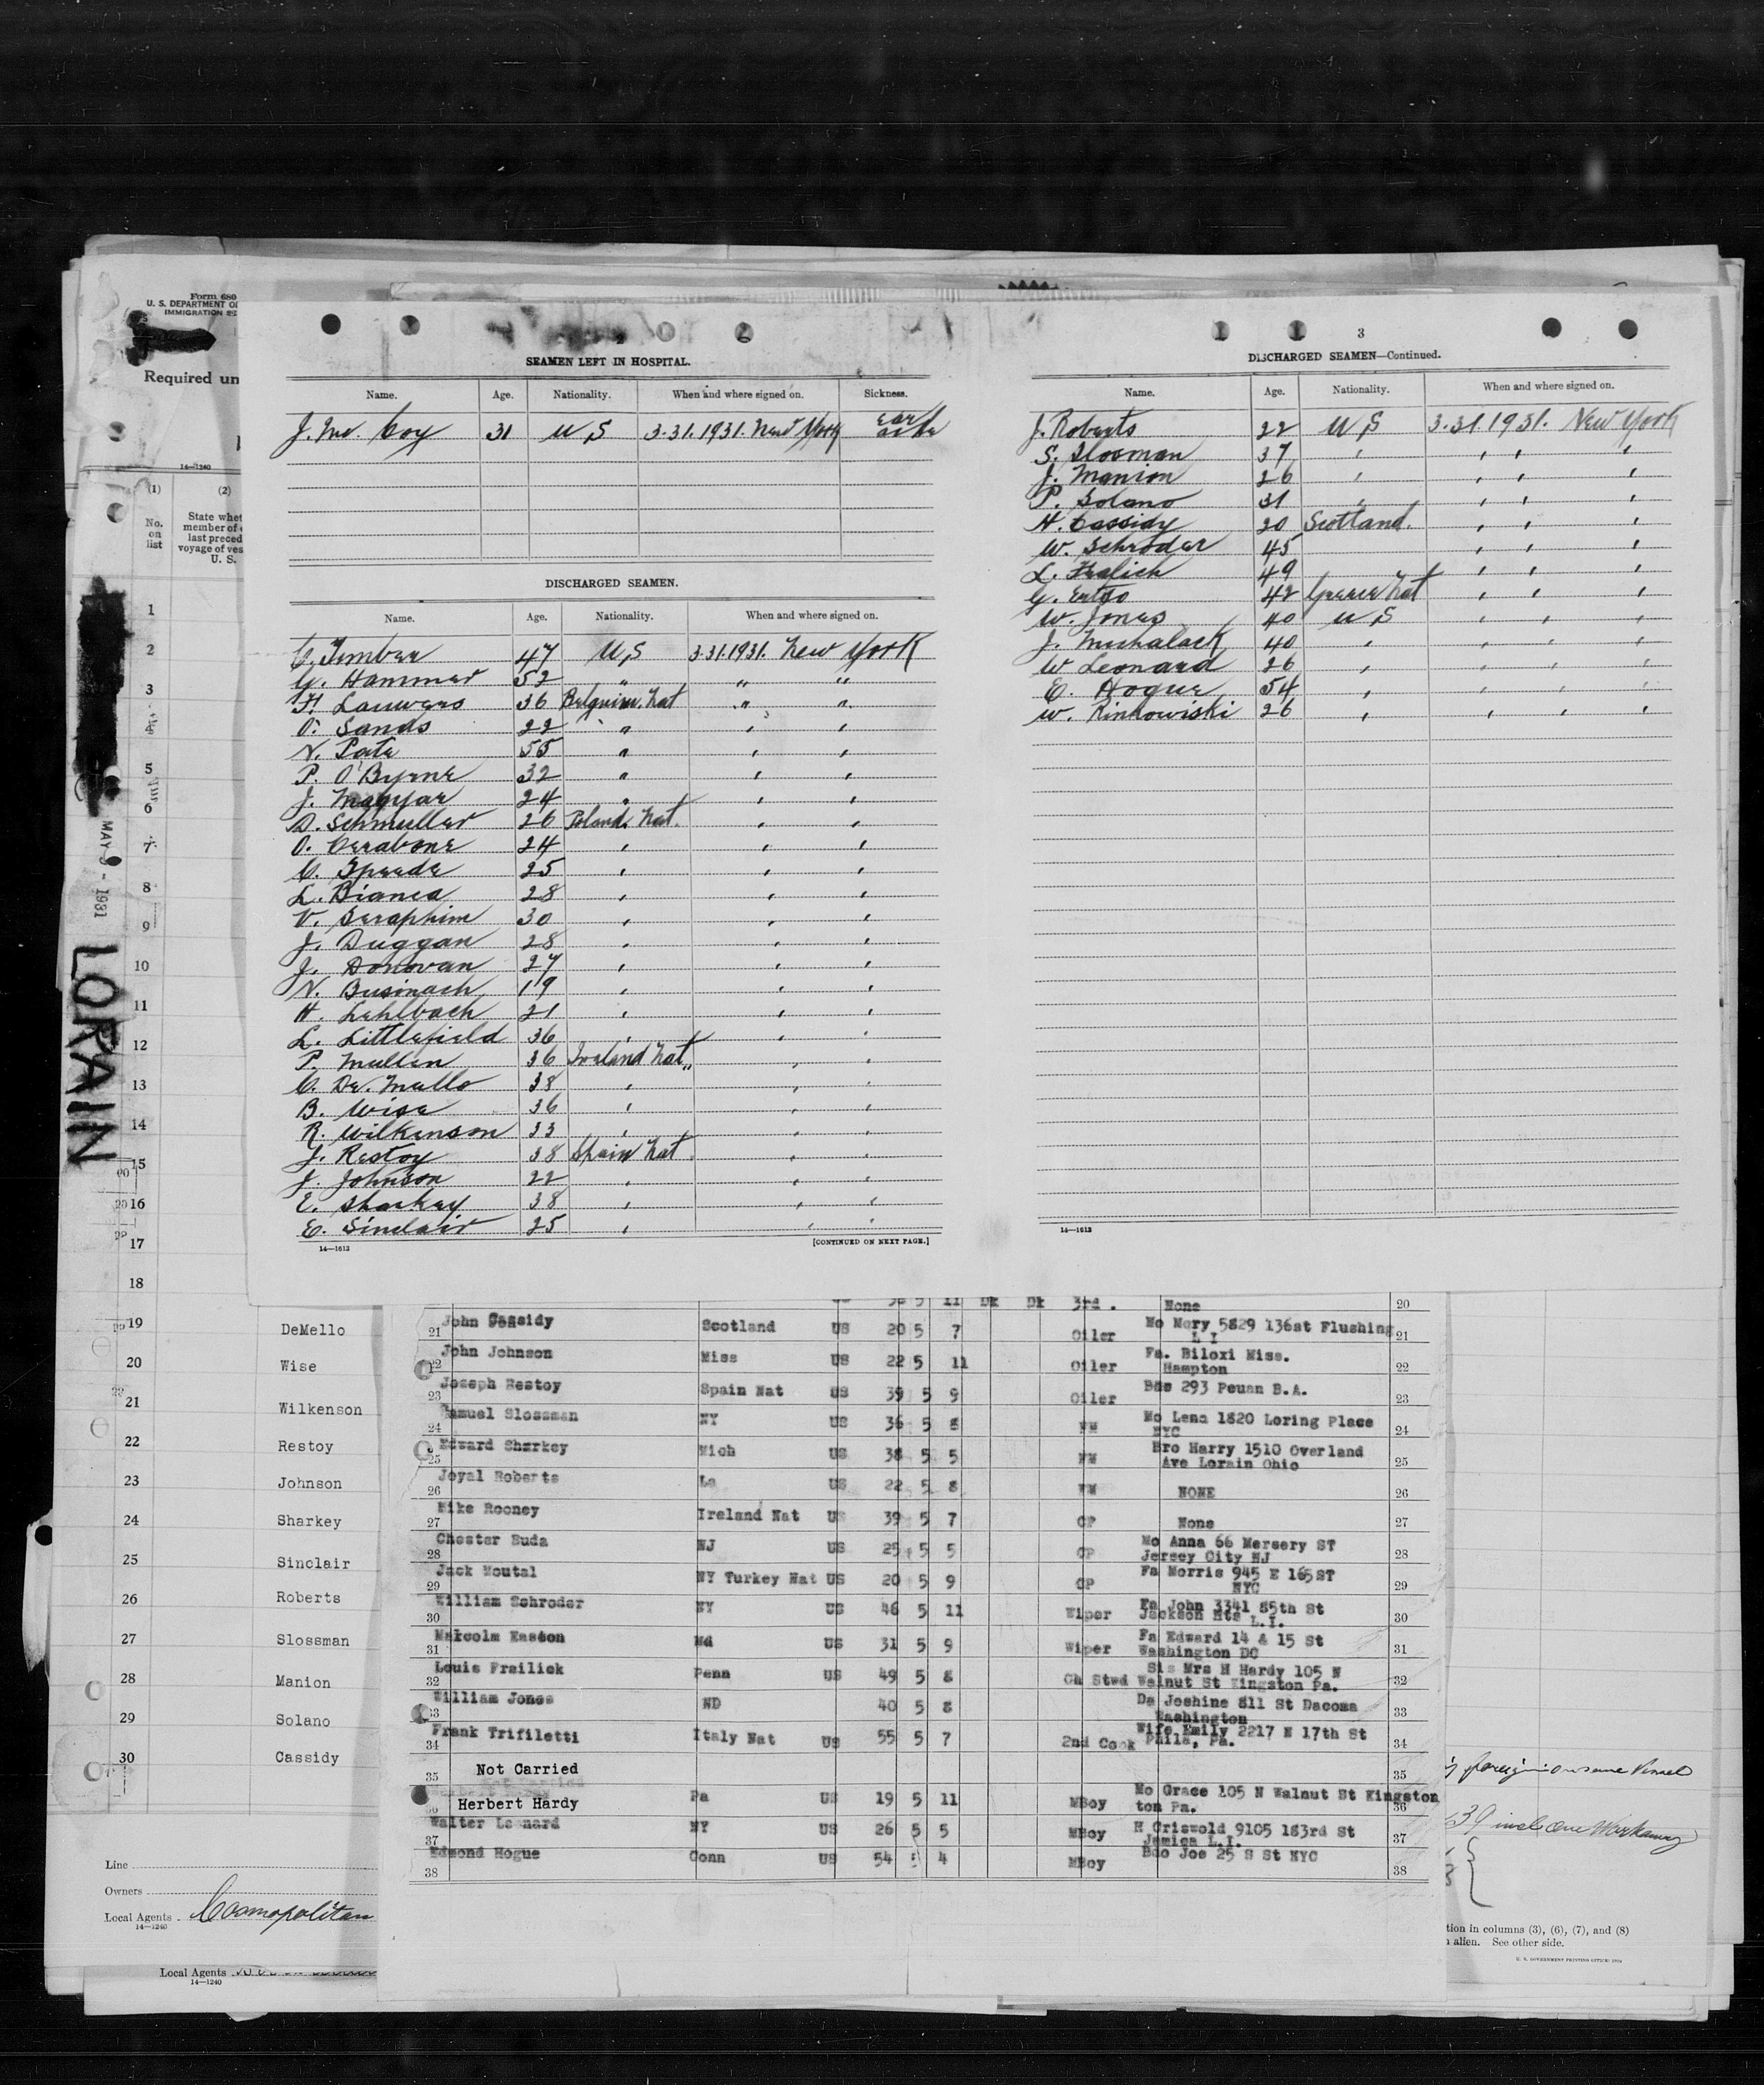 Form 680
U. S. DEPARTMENT OF
IMMIGRATION SE
Required un
14—1240
(1) (2)
No. on list
State whet
member of
last preced
voyage of ves
U. S.
1
2
3
4
5
6
7
8
9
10
11
12
13
14
15
16
17
18
19 DeMello
20 Wise
21 Wilkenson
22 Restoy
23 Johnson
24 Sharkey
25 Sinclair
26 Roberts
27 Slossman
28 Manion
29 Solano
30 Cassidy
MAY 9 - 1931
LORAIN
Line
Owners
Local Agents Cosmopolitan
14—1240
Local Agents
14—1240
2
SEAMEN LEFT IN HOSPITAL.
Name. Age. Nationality. When and where signed on. Sickness.
J. Mc. Coy 31 U,S 3.31.1931. New York ear ache
DISCHARGED SEAMEN.
Name. Age. Nationality. When and where signed on.
C. Timber 47 U,S 3.31.1931. New York
G. Hammer 52 " " "
H. Lauwers 36 Belguim. Nat " "
O. Sands 22 " " "
N. Pate 55 " " "
P. O'Byrne 32 " " "
J. Magyar 24 " " "
D. Schmuller 26 Poland. Nat. " "
O. Cerabone 24 " " "
C. Speede 25 " " "
L. Bianca 28 " " "
V. Seraphim 30 " " "
J. Duggan 28 " " "
J. Donovan 27 " " "
N. Businach 19 " " "
H. Lehlbach 21 " " "
L. Littlefield 36 " " "
P. Mullen 36 Ireland Nat " "
C. De. Mello 38 " " "
B. Wise 36 " " "
R. Wilkenson 33 " " "
J. Restoy 38 Spain Nat " "
J. Johnson 22 " " "
E. Sharkey 38 " " "
E. Sinclair 25 " " "
14—1612 [CONTINUED ON NEXT PAGE.]
3
DISCHARGED SEAMEN—Continued.
Name. Age. Nationality. When and where signed on.
J. Roberts 22 U,S 3.31.1931. New York
S. Slosman 37 " " " "
J. Manion 26 " " " "
P. Solano 31 " " " "
H. Cassidy 20 Scotland. " " "
W. Schroder 45 " " "
L. Fralich 49 " " "
G. Entgo 42 Greece Nat " " "
W. Jones 40 U,S " " "
J. Michalack 40 " " " "
W Leonard 26 " " " "
E. Hogue 54 " " " "
W. Rinkowiski 26 " " " "
14—1612
11 Dk Dk 3rd. None 20
21 John Cassidy Scotland US 20 5 7 Oiler Mo Mary 5829 136st Flushing L I 21
22 John Johnson Miss US 22 5 11 Oiler Fa. Biloxi Miss. Hampton 22
23 Joseph Restoy Spain Nat US 39 5 9 Oiler Bdo 293 Peuan B.A. 23
24 Samuel Slossman NY US 36 5 8 WM Mo Lena 1820 Loring Place NYC 24
25 Edward Sharkey Mich US 38 5 5 WM Bro Harry 1510 Overland Ave Lorain Ohio 25
26 Joyal Roberts La US 22 5 8 WM NONE 26
27 Mike Rooney Ireland Nat US 39 5 7 CP None 27
28 Chester Buda NJ US 25 5 5 CP Mo Anna 66 Mersery ST Jersey City NJ 28
29 Jack Moutal NY Turkey Nat US 20 5 9 CP Fa Morris 945 E 165ST NYC 29
30 William Schroder NY US 46 5 11 Wiper Fa John 3341 85th St Jackson Hts L.I. 30
31 Malcolm Easton Md US 31 5 9 Wiper Fa Edward 14 & 15 St Washington DC 31
32 Louis Frailick Penn US 49 5 8 Ch Stwd Sis Mrs H Hardy 105 N Walnut St Kingston Pa. 32
33 William Jones ND 40 5 8 Da Joshine 811 St Dacoma Washington 33
34 Frank Trifiletti Italy Nat US 55 5 7 2nd Cook Wife Emily 2217 N 17th St Phila, Pa. 34
35 Not Carried 35
36 Herbert Hardy Pa US 19 5 11 MBoy Mo Grace 105 N Walnut St Kingston ton Pa. 36
37 Walter Leonard NY US 26 5 5 MBoy H Griswold 9105 183rd St Jamica L.I. 37
38 Edmond Hogue Conn US 54 5 4 MBoy Bdo Joe 25 S St NYC 38
foreign on same Vessel
39 incl one Workaway
tion in columns (3), (6), (7), and (8)
alien. See other side.
U. S. GOVERNMENT PRINTING OFFICE